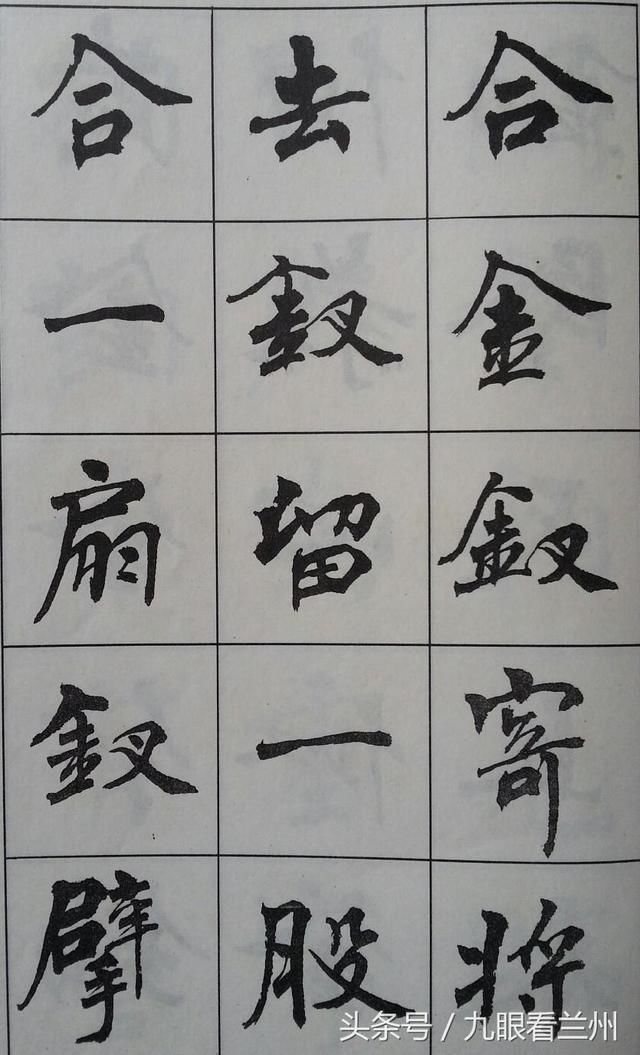 合金釵寄將
去釵留一股
合一扇釵擘
头条号 / 九眼看兰州